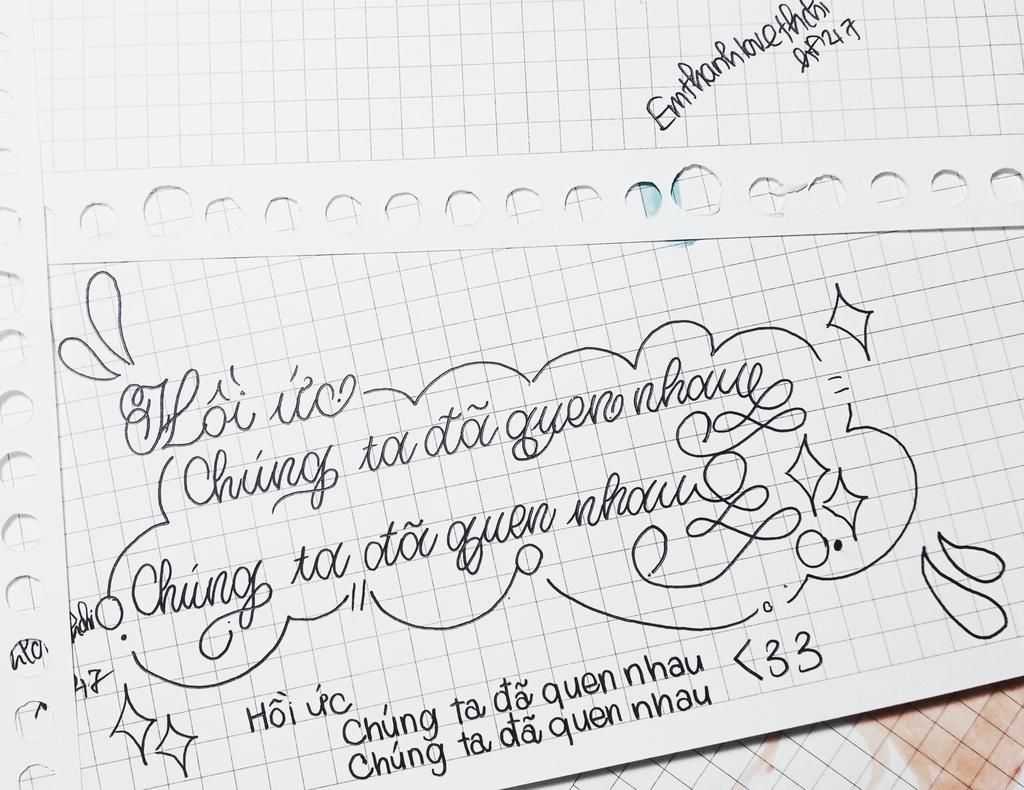 Emthanhlovethchi
47
Hồi ức
Chúng ta đã quen nhau
Chúng ta đã quen nhau
47
Hồi ức
Chúng ta đã quen nhau <33
Chúng ta đã quen nhau